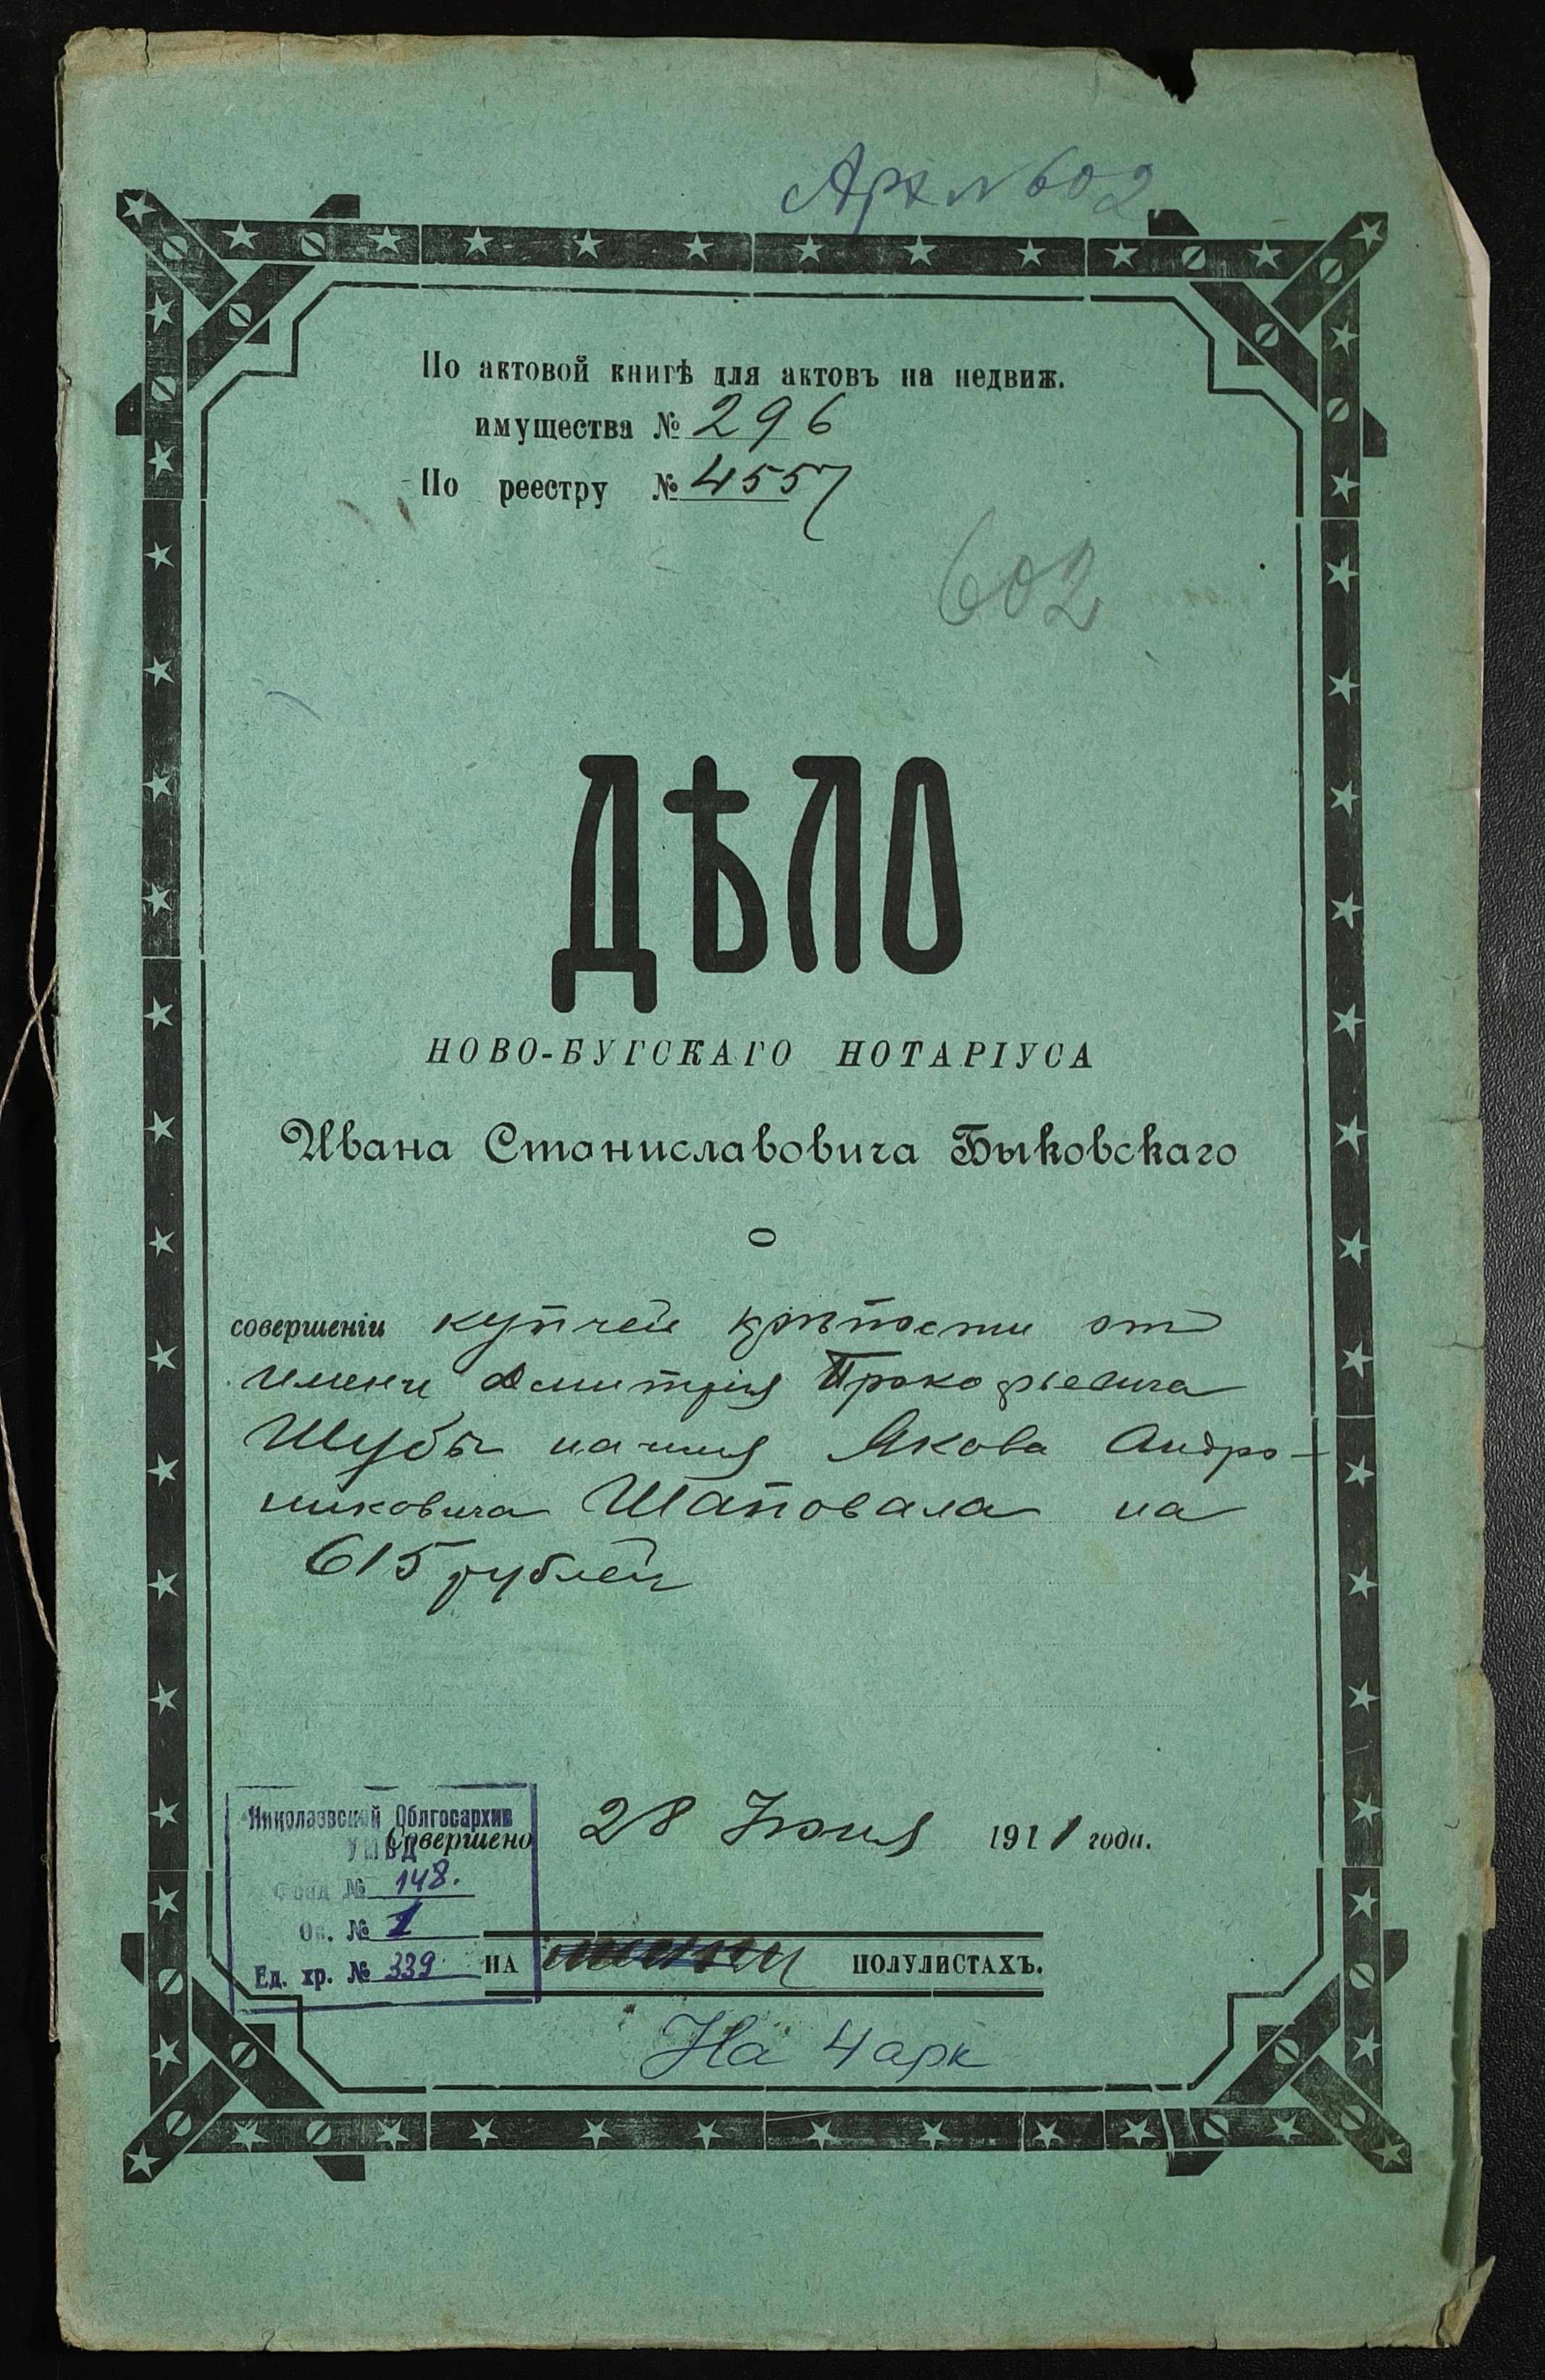 Арх № 602
По актовой книгѣ для актовъ на недвиж.
имущества № 296
По реестру № 4557
602
ДѢЛО
НОВО-БУГСКАГО НОТАРІУСА
Ивана Станиславовича Быковскаго
о
совершеніи купчей крѣпости отъ
имени Дмитрія Прокофьевича
Шубы на имя Якова Андро-
никовича Шаповала на
615 рублей
Николаевский Облгосархив
УМВД
Совершено 28 Іюня 1911 года.
Фонд № 148.
Оп. № 1
Ед. хр. № 339
НА ПОЛУЛИСТАХЪ.
На 4 арк